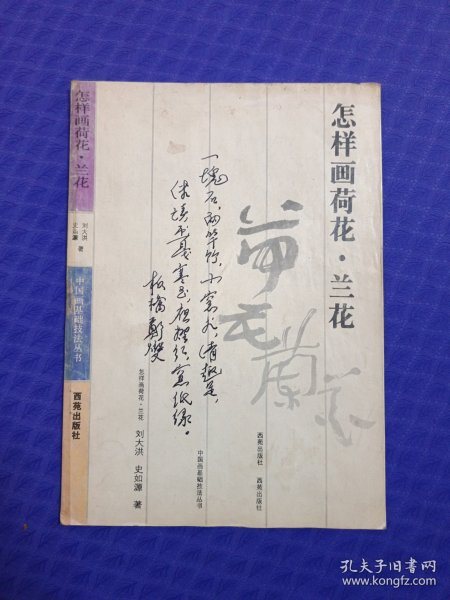 怎样画荷花·兰花
荷花
兰花
一块石，两竿竹，小窗前，清趣足，
板桥郑燮
怎样画荷花·兰花
刘大洪 史如源 著
中国画基础技法丛书
西苑出版社 西苑出版社
怎样画荷花·兰花
刘大洪
史如源 著
中国画基础技法丛书
西苑出版社
孔夫子旧书网
www.kongfz.com